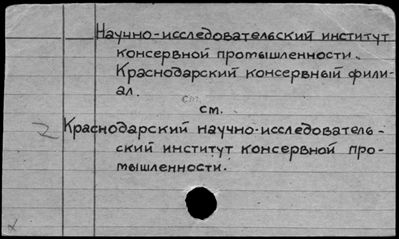 Научно-исследовательский институт
консервной промышленности.
Краснодарский консервный фили-
ал.
см.
см.
2 Краснодарский научно-исследователь-
ский институт консервной про-
мышленности.
x